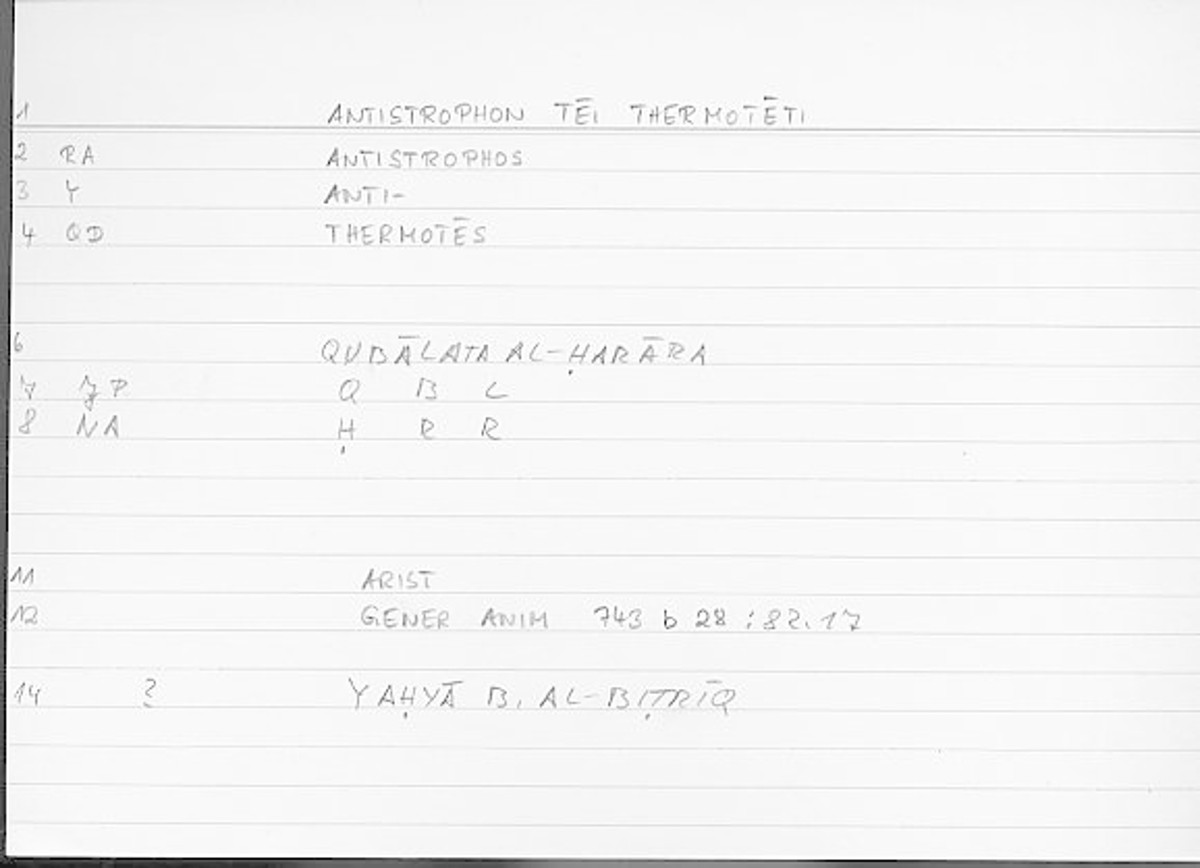 1 ANTISTROPHON TĒI THERMOTĒTI
2 RA ANTISTROPHOS
3 Y ANTI-
4 QD THERMOTĒS
6 QUBĀLATA AL-ḤARĀRA
7 P Q B L
8 NA Ḥ R R
11 ARIST
12 GENER ANIM 743 b 28 : 82.17
14 ? YAḤYĀ B. AL-BIṬRĪQ